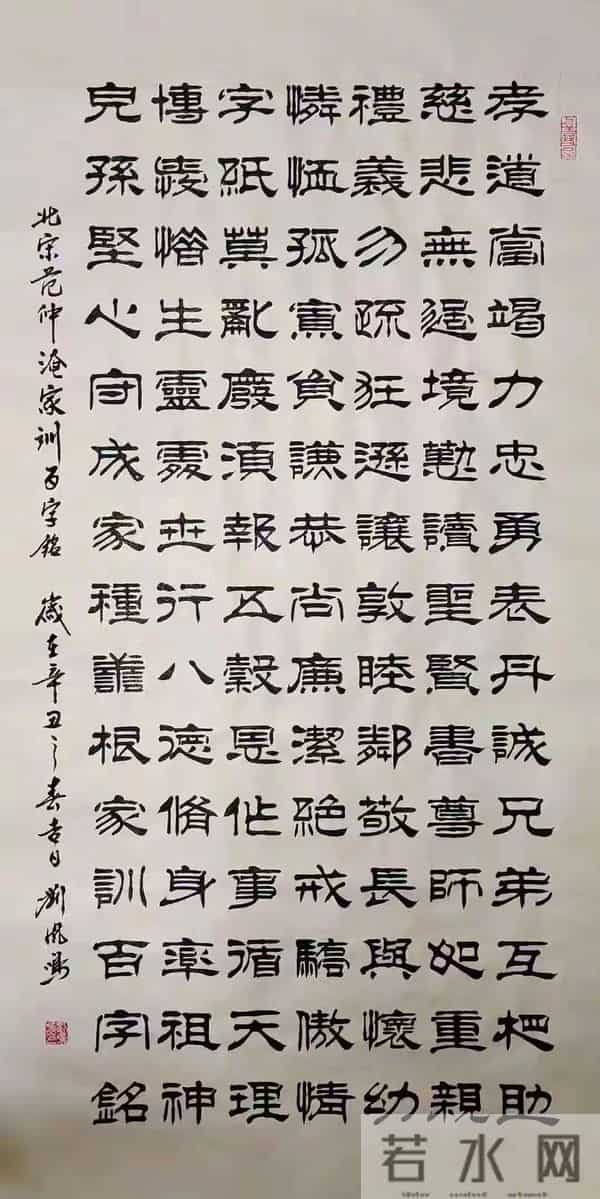 孝道當竭力忠勇表丹誠兄弟互相助
慈悲無過境勤讀聖賢書尊師如重親
禮義勿疏狂遜讓敦睦鄰敬長與懷幼
憐恤孤寡貧謙恭尚廉潔絕戒驕傲情
字紙莫亂廢須報五穀恩作事循天理
博愛惜生靈處世行八德脩身率祖神
兒孫堅心守成家種善根家訓百字銘
北宋范仲淹家训百字銘 歲在辛丑之春吉日 劉
若水网